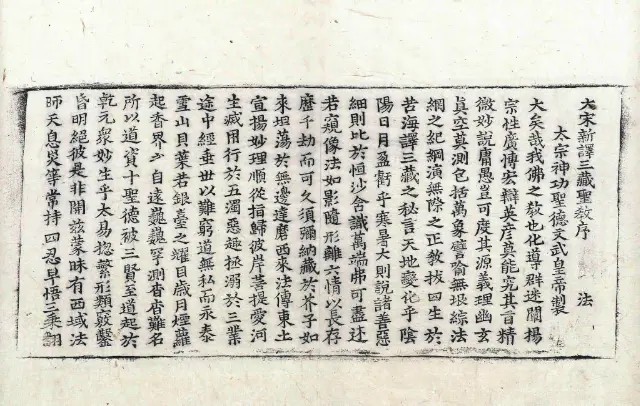 大宋新譯三藏聖教序 法
太宗神功聖德文武皇帝製
大矣哉我佛之教也化導群迷闡揚
宗性廣博宏辯英彥莫能究其旨精
微妙說庸愚豈可度其源義理幽玄
真空莫測包括萬象譬喻無垠綜法
網之紀綱演無際之正教拔四生於
苦海譯三藏之秘言天地變化乎陰
陽日月盈虧乎寒暑大則說諸善惡
細則比於恒沙含識萬端弗可盡述
若窺像法如影隨形離六情以長存
歷千劫而可久須彌納藏於芥子如
來坦蕩於無邊達磨西來法傳東土
宣揚妙理順從指歸彼岸菩提愛河
生滅用行於五濁惡趣拯溺於三業
途中經垂世以難窮道無私而永泰
雪山貝葉若銀臺之耀目歲月煙蘿
起香界之自遠巍巍罕測杳杳難名
所以道資十聖德被三賢至道起於
乾元眾妙生乎太易揔繁形類竅鑿
昏明絕彼是非開茲蒙昧有西域法
師天息災等常持四忍早悟三乘翻